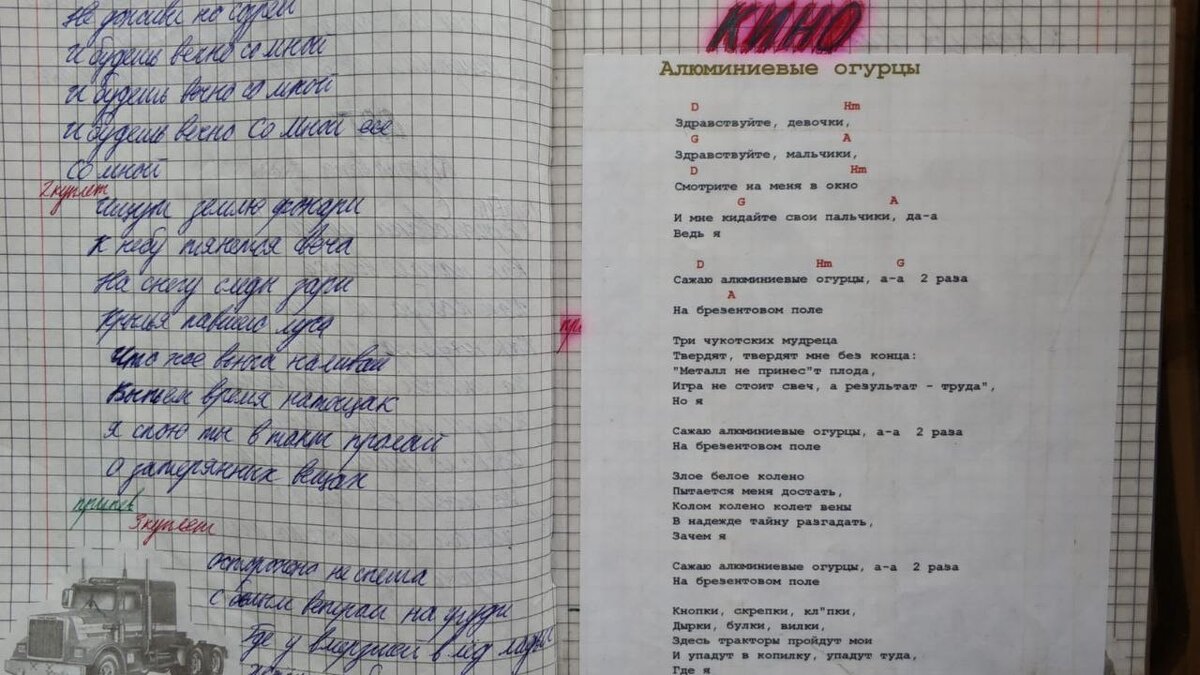 Не
И будешь вечно со мной
И будешь вечно со мной
И будешь вечно со мной
Со мной
2 куплет
Ищут землю фонари
К небу тянется свеча
На снегу следы зари
Крылья павшего луча
Что же вьюга наливай
Выпьем время натощак
Я спою ты в такты пролай
О затерянных вещах
припев
3 куплет
осторожно не спеша
с белым ветром на груди
Где у вмерзшей в лёд ладьи
КИНО
Алюминиевые огурцы
D Hm
Здравствуйте, девочки,
G A
Здравствуйте, мальчики,
D Hm
Смотрите на меня в окно
G A
И мне кидайте свои пальчики, да-а
Ведь я
D Hm G
Сажаю алюминиевые огурцы, а-а 2 раза
A
На брезентовом поле
Три чукотских мудреца
Твердят, твердят мне без конца:
"Металл не принес"т плода,
Игра не стоит свеч, а результат - труда",
Но я
Сажаю алюминиевые огурцы, а-а 2 раза
На брезентовом поле
Злое белое колено
Пытается меня достать,
Колом колено колет вены
В надежде тайну разгадать,
Зачем я
Сажаю алюминиевые огурцы, а-а 2 раза
На брезентовом поле
Кнопки, скрепки, кл"пки,
Дырки, булки, вилки,
Здесь тракторы пройдут мои
И упадут в копилку, упадут туда,
Где я